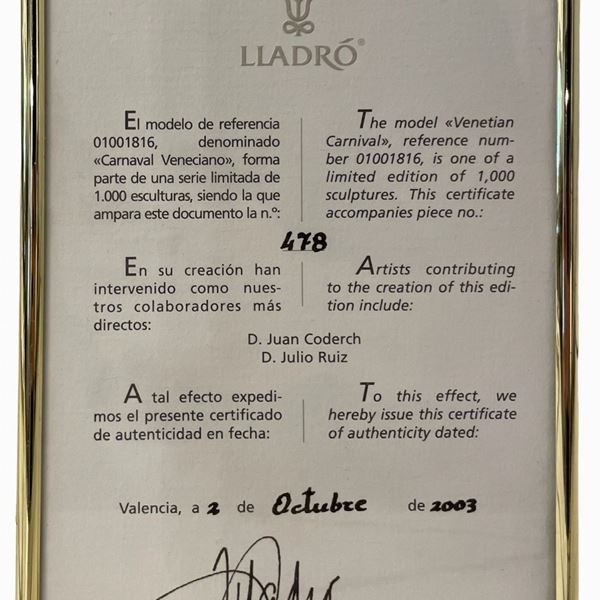 LLADRÓ®
El modelo de referencia
01001816, denominado
«Carnaval Veneciano», forma
parte de una serie limitada de
1.000 esculturas, siendo la que
ampara este documento la n.º:
The model «Venetian
Carnival», reference num-
ber 01001816, is one of a
limited edition of 1,000
sculptures. This certificate
accompanies piece no.:
478
En su creación han
intervenido como nues-
tros colaboradores más
directos:
Artists contributing
to the creation of this edi-
tion include:
D. Juan Coderch
D. Julio Ruiz
A tal efecto expedi-
mos el presente certificado
de autenticidad en fecha:
To this effect, we
hereby issue this certificate
of authenticity dated:
Valencia, a 2 de Octubre de 2003